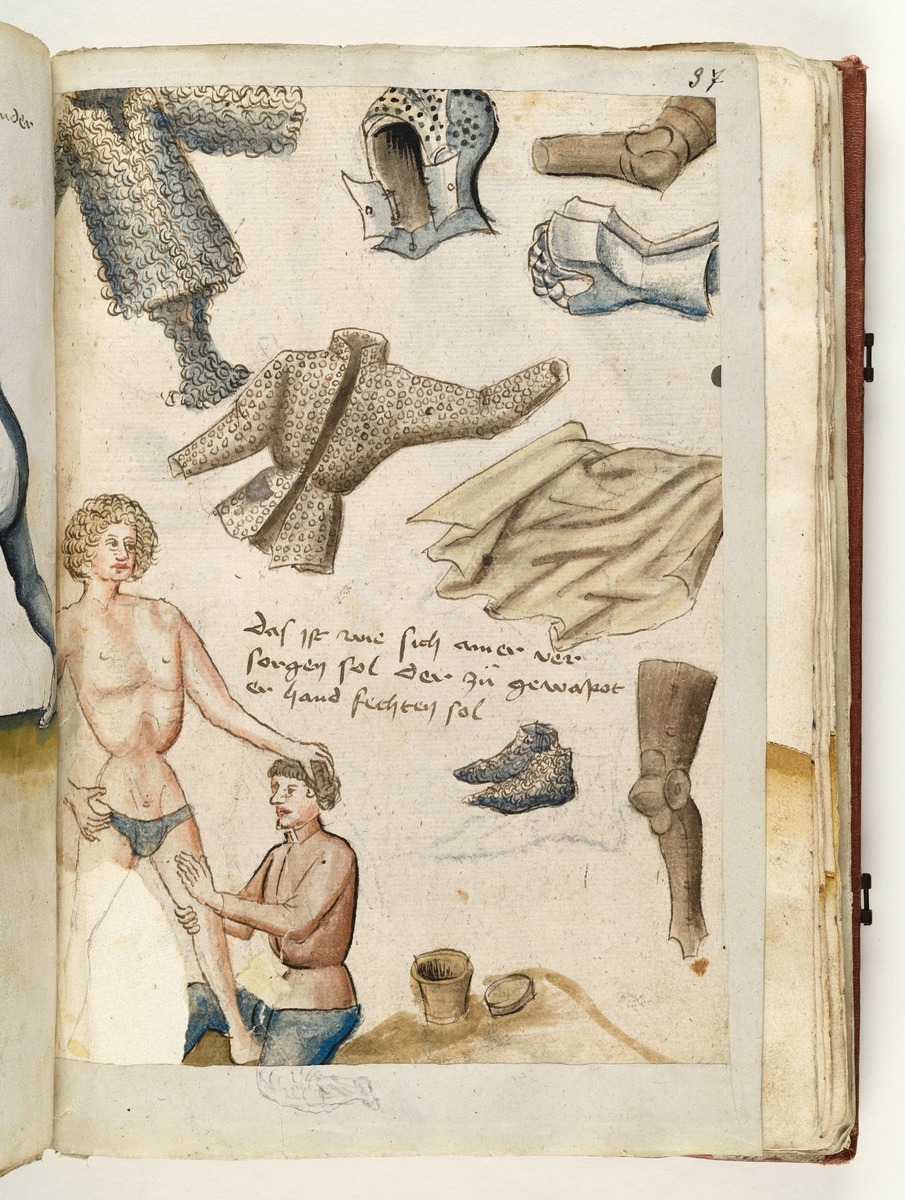 37
nder
das ist wie sich ainer ver
sorgen sol der zů gewapot
er hand fechten sol